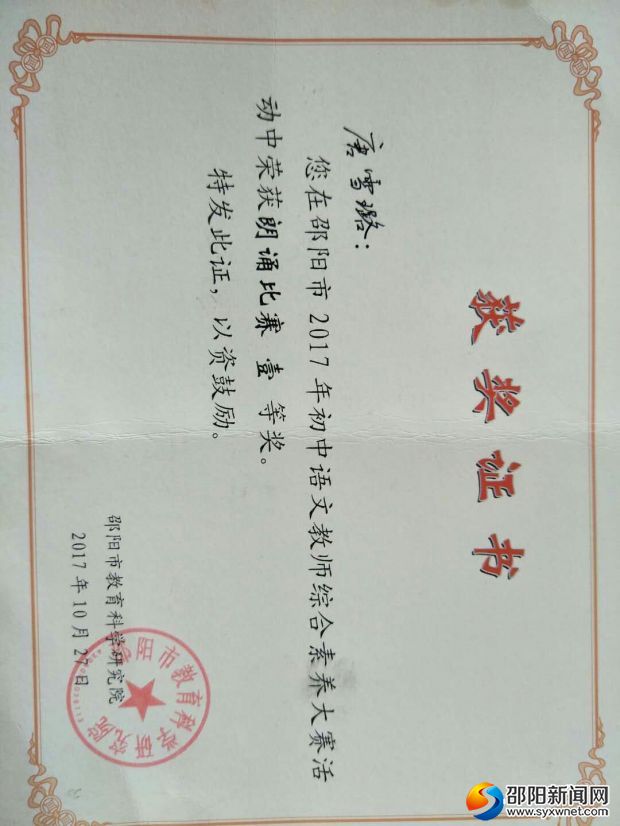 获奖证书
唐雪璐：
您在邵阳市2017年初中语文教师综合素养大赛活
动中荣获朗诵比赛壹等奖。
特发此证，以资鼓励。
邵阳市教育科学研究院
2017年10月27日
邵阳市教育科学研究院
邵阳新闻网
www.syxwnet.com